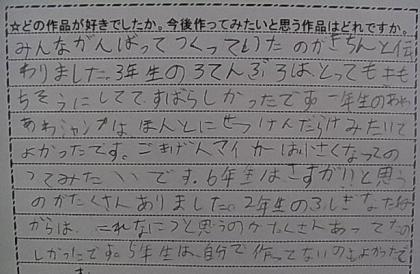 ☆どの作品が好きでしたか。今後作ってみたいと思う作品はどれですか。
みんながんばってつくっていたのがきちんと伝
わりました。3年生の3てんぶろは、とってもキモ
ちそうにしてて、すばらしかったです。一年生のあわ
あわジャンプは、ほんとにせっけんだらけみたいで
よかったです。ごきげんマイカーは小さくなっての
ってみたいです。6年生はさすが!!と思う
のがたくさんありました。2年生のふしぎなた
からは、これなに?と思うのがたくさんあってたの
しかったです。5年生は、自分で作ってないのもよかったで
す。